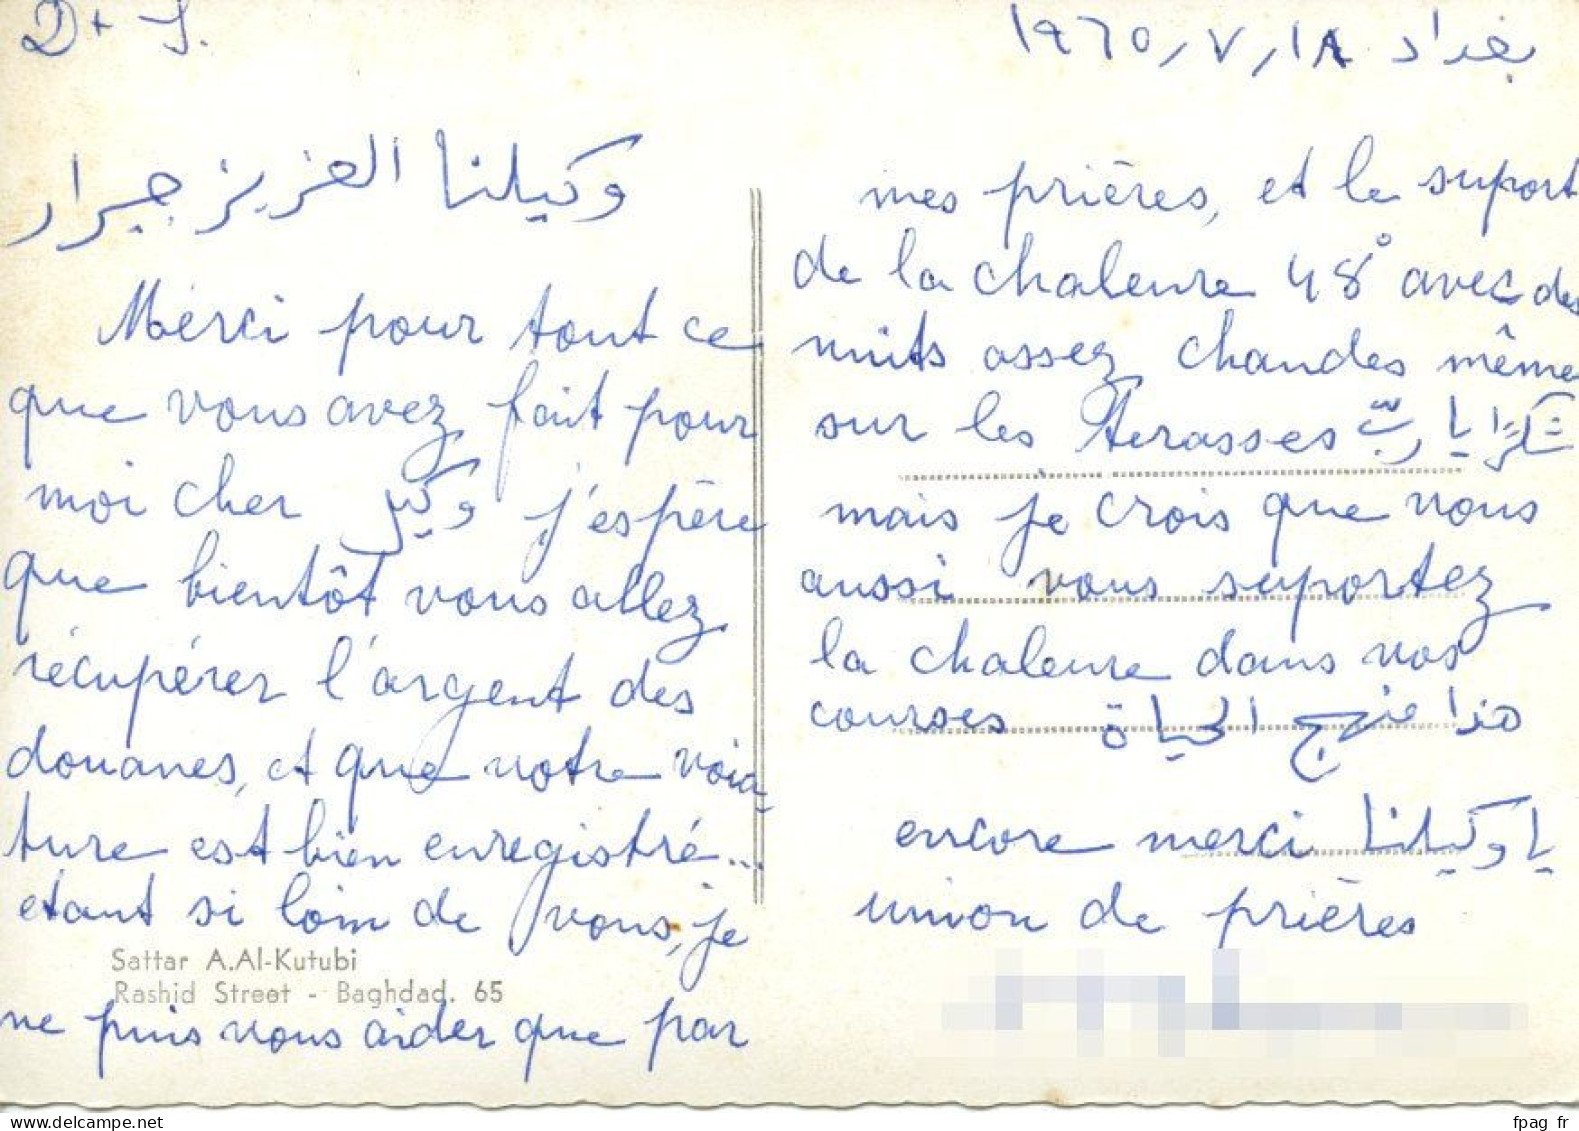 D+J.
بغداد ١٩٦٥,٧,١٨
وكيلنا العزيز جبرار
Mérci pour tout ce
que vous avez fait pour
moi cher وكيل j'espère
que bientôt vous allez
récupérer l'argent des
douanes, et que votre voia-
ture est bien enregistré...
etant si loin de vous, je
Sattar A.Al-Kutubi
Rashid Street - Baghdad. 65
ne puis vous aider que par
mes prières, et le suport
de la chaleure 48° avec des
nuits assez chaudes même
sur les terasses يا رب
mais je crois que vous
aussi vous suportez
la chaleure dans vos
courses هذا منهج الحياة
encore merci يا وكيلنا
union de prières
fpag_fr